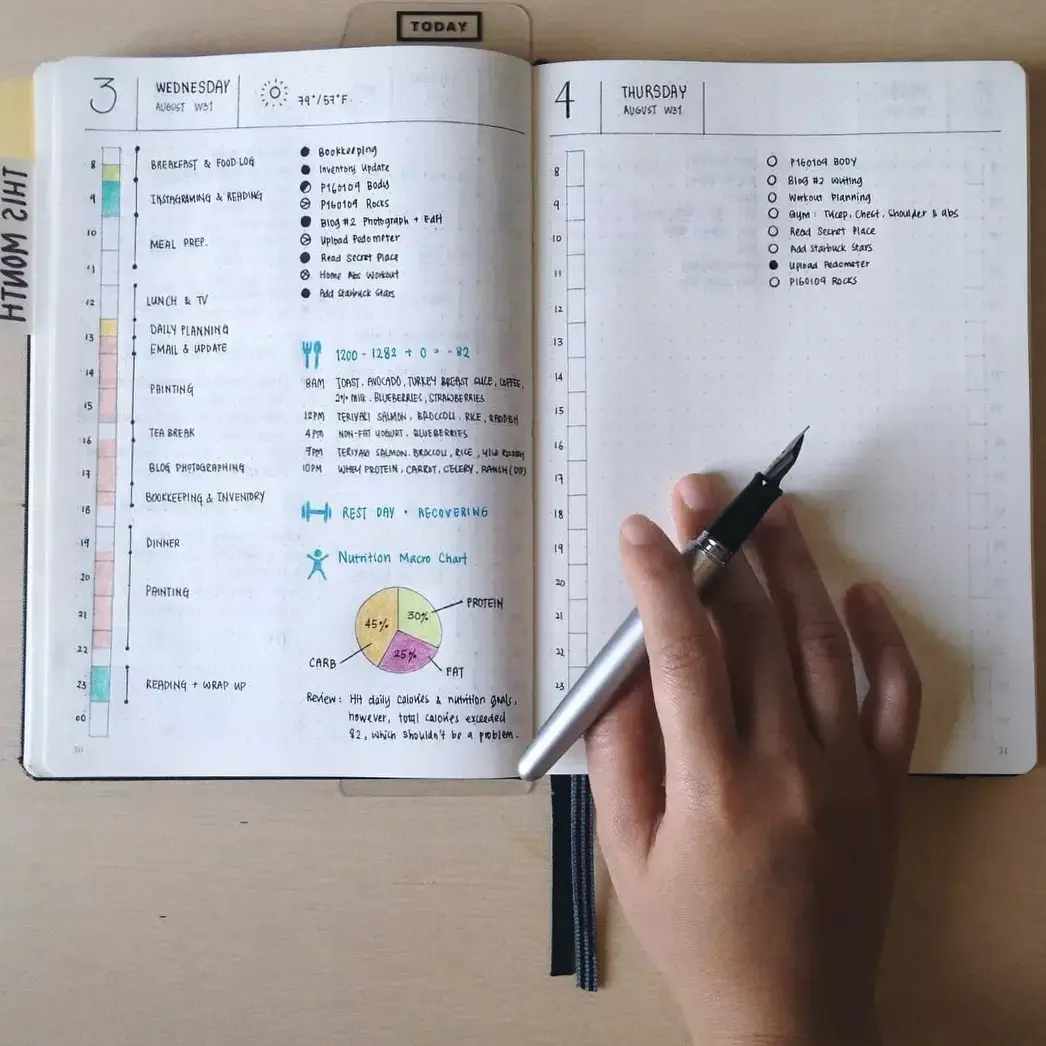 TODAY
THIS MONTH
3
WEDNESDAY
AUGUST W31
79°/57°F
8
9
10
11
12
13
14
15
16
17
18
19
20
21
22
23
00
BREAKFAST & FOOD LOG
INSTAGRAMING & READING
MEAL PREP.
LUNCH & TV
DAILY PLANNING
EMAIL & UPDATE
PAINTING
TEA BREAK
BLOG PHOTOGRAPHING
BOOKKEEPING & INVENTORY
DINNER
PAINTING
READING + WRAP UP
Bookkeeping
Inventory Update
P160109 Body
P160109 Rocks
Blog #2 Photograph + Edit
Upload Pedometer
Read Secret Place
Home Abs Workout
Add Starbuck Stars
1200 - 1282 + 0 = -82
8AM TOAST, AVOCADO, TURKEY BREAST SLICE, COFFEE,
2% MILK, BLUEBERRIES, STRAWBERRIES
12PM TERIYAKI SALMON, BROCCOLI, RICE, RADDISH
4PM NON-FAT YOGURT, BLUEBERRIES
7PM TERIYAKI SALMON, BROCCOLI, RICE,
10PM WHEY PROTEIN, CARROT, CELERY, RANCH (DIP)
REST DAY • RECOVERING
Nutrition Macro Chart
PROTEIN
30%
45%
25%
CARB
FAT
Review: Hit daily calories & nutrition goals,
however, total calories exceeded
82, which shouldn't be a problem.
30
4
THURSDAY
AUGUST W31
8
9
10
11
12
13
14
15
16
17
18
19
20
21
22
23
P160109 BODY
Blog #2 Writing
Workout Planning
Gym: Tricep, Chest, Shoulder & abs
Read Secret Place
Add Starbuck Stars
Upload Pedometer
P160109 ROCKS
31